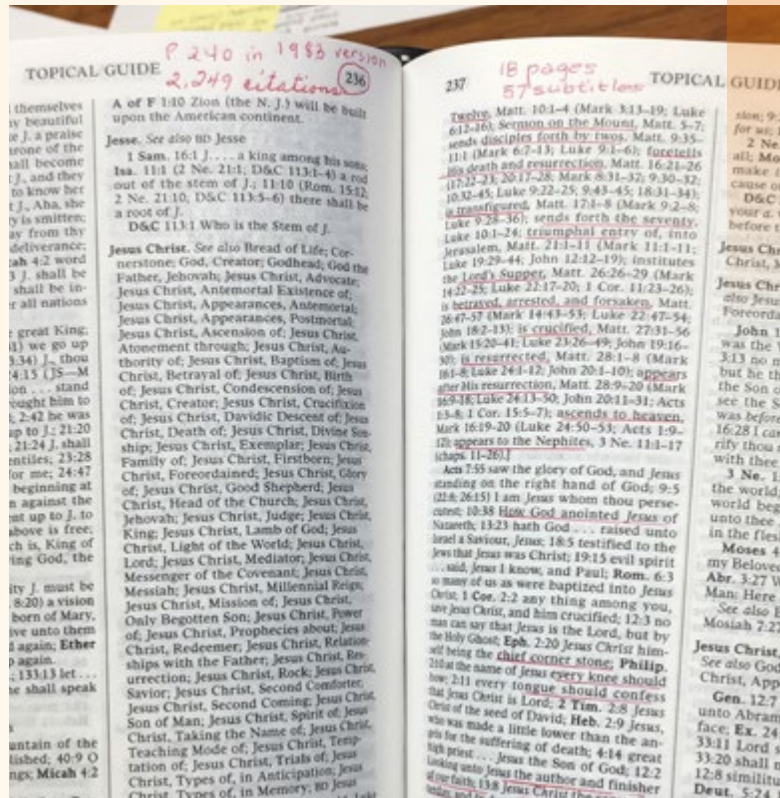 P 240 in 1983 version
TOPICAL GUIDE
2,249 citations
236
themselves
beautiful
J. a praise
throne of the
shall become
J., and they
to know her
J., Aha, she
y is smitten;
ay from thy
deliverance;
4:2 word
3 J. shall be
shall be in-
r all nations
great King;
we go up
3:34) J., thou
4:15 (JS—M
... stand
ought him to
2:42 he was
up to J.; 21:20
21:24 J. shall
entiles; 23:28
for me; 24:47
beginning at
n against the
nt up to J. to
above is free;
ch is, King of
ing God, the
ity J. must be
8:20) a vision
born of Mary,
ve unto them
d again; Ether
p again.
; 133:13 let ...
e shall speak
untain of the
lished; 40:9 O
ngs; Micah 4:2
A of F 1:10 Zion (the N. J.) will be built
upon the American continent.
Jesse. See also BD Jesse
1 Sam. 16:1 J. . . . a king among his sons;
Isa. 11:1 (2 Ne. 21:1; D&C 113:1–4) a rod
out of the stem of J.; 11:10 (Rom. 15:12;
2 Ne. 21:10; D&C 113:5–6) there shall be
a root of J.
D&C 113:1 Who is the Stem of J.
Jesus Christ. See also Bread of Life; Cor-
nerstone; God, Creator; Godhead; God the
Father, Jehovah; Jesus Christ, Advocate;
Jesus Christ, Antemortal Existence of;
Jesus Christ, Appearances, Antemortal;
Jesus Christ, Appearances, Postmortal;
Jesus Christ, Ascension of; Jesus Christ,
Atonement through; Jesus Christ, Au-
thority of; Jesus Christ, Baptism of; Jesus
Christ, Betrayal of; Jesus Christ, Birth
of; Jesus Christ, Condescension of; Jesus
Christ, Creator; Jesus Christ, Crucifixion
of; Jesus Christ, Davidic Descent of; Jesus
Christ, Death of; Jesus Christ, Divine Son-
ship; Jesus Christ, Exemplar; Jesus Christ,
Family of; Jesus Christ, Firstborn; Jesus
Christ, Foreordained; Jesus Christ, Glory
of; Jesus Christ, Good Shepherd; Jesus
Christ, Head of the Church; Jesus Christ,
Jehovah; Jesus Christ, Judge; Jesus Christ,
King; Jesus Christ, Lamb of God; Jesus
Christ, Light of the World; Jesus Christ,
Lord; Jesus Christ, Mediator; Jesus Christ,
Messenger of the Covenant; Jesus Christ,
Messiah; Jesus Christ, Millennial Reign;
Jesus Christ, Mission of; Jesus Christ,
Only Begotten Son; Jesus Christ, Power
of; Jesus Christ, Prophecies about; Jesus
Christ, Redeemer; Jesus Christ, Relation-
ships with the Father; Jesus Christ, Res-
urrection; Jesus Christ, Rock; Jesus Christ,
Savior; Jesus Christ, Second Comforter;
Jesus Christ, Second Coming; Jesus Christ,
Son of Man; Jesus Christ, Spirit of; Jesus
Christ, Taking the Name of; Jesus Christ,
Teaching Mode of; Jesus Christ, Temp-
tation of; Jesus Christ, Trials of; Jesus
Christ, Types of, in Anticipation; Jesus
Christ, Types of, in Memory; BD Jesus
237
18 pages
57 subtitles
TOPICAL GUIDE
Twelve, Matt. 10:1–4 (Mark 3:13–19; Luke
6:12–16); Sermon on the Mount, Matt. 5–7;
sends disciples forth by twos, Matt. 9:35–
11:1 (Mark 6:7–13; Luke 9:1–6); foretells
His death and resurrection, Matt. 16:21–26
(17:22–23; 20:17–28; Mark 8:31–32; 9:30–32;
10:32–45; Luke 9:22–25; 9:43–45; 18:31–34);
is transfigured, Matt. 17:1–8 (Mark 9:2–8;
Luke 9:28–36); sends forth the seventy,
Luke 10:1–24; triumphal entry of, into
Jerusalem, Matt. 21:1–11 (Mark 11:1–11;
Luke 19:29–44; John 12:12–19); institutes
the Lord's Supper, Matt. 26:26–29 (Mark
14:22–25; Luke 22:17–20; 1 Cor. 11:23–26);
is betrayed, arrested, and forsaken, Matt.
26:47–57 (Mark 14:43–53; Luke 22:47–54;
John 18:2–13); is crucified, Matt. 27:31–56
(Mark 15:20–41; Luke 23:26–49; John 19:16–
30); is resurrected, Matt. 28:1–8 (Mark
16:1–8; Luke 24:1–12; John 20:1–10); appears
after His resurrection, Matt. 28:9–20 (Mark
16:9–18; Luke 24:13–50; John 20:11–31; Acts
1:3–8; 1 Cor. 15:5–7); ascends to heaven,
Mark 16:19–20 (Luke 24:50–53; Acts 1:9–
12); appears to the Nephites, 3 Ne. 11:1–17
(chaps. 11–26).]
Acts 7:55 saw the glory of God, and Jesus
standing on the right hand of God; 9:5
(22:8; 26:15) I am Jesus whom thou perse-
cutest; 10:38 How God anointed Jesus of
Nazareth; 13:23 hath God . . . raised unto
Israel a Saviour, Jesus; 18:5 testified to the
Jews that Jesus was Christ; 19:15 evil spirit
. . . said, Jesus I know, and Paul; Rom. 6:3
so many of us as were baptized into Jesus
Christ; 1 Cor. 2:2 any thing among you,
save Jesus Christ, and him crucified; 12:3 no
man can say that Jesus is the Lord, but by
the Holy Ghost; Eph. 2:20 Jesus Christ him-
self being the chief corner stone; Philip.
2:10 at the name of Jesus every knee should
bow; 2:11 every tongue should confess
that Jesus Christ is Lord; 2 Tim. 2:8 Jesus
Christ of the seed of David; Heb. 2:9 Jesus,
who was made a little lower than the an-
gels for the suffering of death; 4:14 great
high priest . . . Jesus the Son of God; 12:2
Looking unto Jesus the author and finisher
of our faith; 13:8 Jesus Christ the
sion; 9:
for us;
2 Ne.
all; Mo
make
cause o
D&C
your a
before t
Jesus Chr
Christ, J
Jesus Chr
also Jesu
Foreorda
John 1
was the
3:13 no
but he th
the Son o
see the S
was before
16:28 I can
rify thou
with thee
3 Ne. 1:
the world
world beg
unto thee
in the flesh
Moses 4
my Beloved
Abr. 3:27 W
Man: Here
See also I
Mosiah 7:27
Jesus Christ,
See also God
Christ, App
Gen. 12:7
unto Abram
face; Ex. 24:
33:11 Lord
33:20 shall n
12:8 similitu
Deut. 5:24